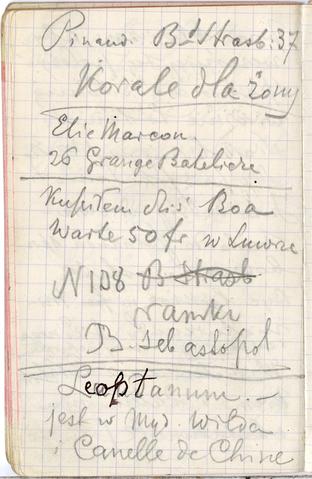 Pinaud. Bd Strasb. 37
Korale dla żony
Elie Marcon.
26 Grange Batelière
Kupiłem dziś Boa
Warte 50 fr w Luwrze
N 108 B Strasb
ramki
B. Sebastopol
jest w Myd. Wilda
i Canelle de Chine